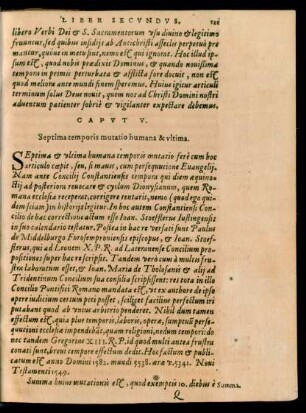 LIBER SECVNDVS.
libero Verbi Dei & S. Sacramentorum vsu diuino & legitimo
fruuntur, sed quibus insidijs ab Antichristi asseclis perpetuò pre
mantur, quiue in metu sint, nemo est qui ignorat. Hoc illud ipsum
est, quod nobis prædixit Dominus, & quando nouissima
tempora in primis perturbata & afflicta fore docuit, non est
quòd meliora ante mundi finem speremus. Huius igitur articuli
terminum solus Deus nouit, quem nos ad Christi Domini nostri
aduentum patienter sobriè & vigilanter expectare debemus.
CAPVT V.
Septima temporis mutatio humana & vltima.
SEptima & vltima humana temporis mutatio ferè cum hoc
articulo cœpit, seu, si mauis, cum persequutione Euangelij.
Nam ante Concilij Constantiensis tempora qui diem æquinoctij
ad posteriora reuocare & cyclum Dionysianum, quem Romana
ecclesia receperat, corrigere tentarit, nemo (quod ego quidem
sciam) in historijs legitur. In hoc autem Constantiensi Concilio
de hac correctione actum esse Ioan. Stoefflerus Iustingensis
in suo calendario testatur. Postea in hac re versati sunt Paulus
de Middelburgo Forosemproniensis episcopus, & Ioan. Stoefflerus,
qui ad Leonem X. P. R. ad Lateranense Concilium propositiones
super hac re scripsit. Tandem verò cum à multis frustra
laboratum esset, & Ioan. Maria de Tholosanis & alij ad
Tridentinum Concilium sua consilia scripsissent: res tota in illo
Concilio Pontifici Romano mandata est, vt ex anchora de ipsius
opera iudicium certum peti posset, scilicet facilius perfectum iri
putabant quod ab vnius arbitrio penderet. Nihil dum tamen
effectum est, quia plus temporis, laboris, operæ, sumptus persequutioni
ecclesiæ impendebat, quàm religioni, nedum tempori: donec
tandem Gregorius XIII. R. P. id quod multi antea frustra
conati sunt, breui tempore effectum dedit. Hoc factum & publicatum
est anno Domini 1582. mundi 5538. æræ 5341. Noui
Testamenti 1549.
Summa huius mutationis est, quod exemptis 10. diebus è
Summa.